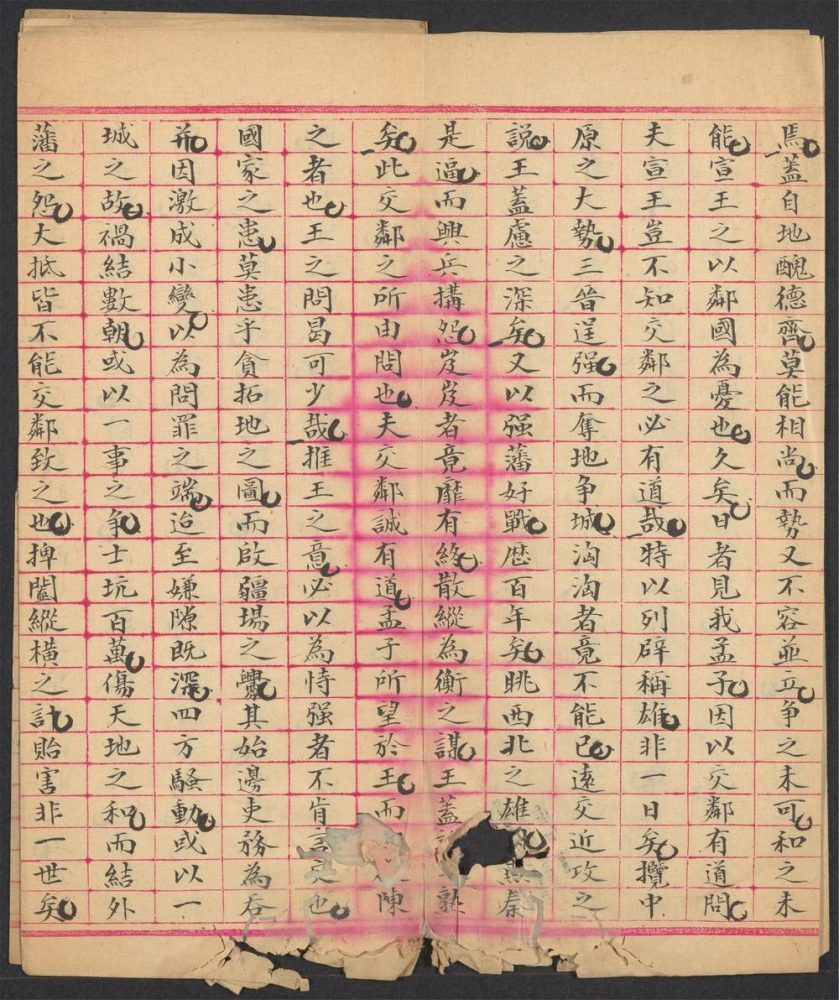 焉蓋自地醜德齊莫能相尚而勢又不容並立爭之未可和之未
能宣王之以鄰國為憂也久矣日者見我孟子因以交鄰有道問
夫宣王豈不知交鄰之必有道哉特以列辟稱雄非一日矣攬中
原之大勢三晉逞强而奪地爭城洶洶者竟不能已遠交近攻之
説王蓋慮之深矣又以强藩好戰歷百年矣眺西北之雄秦
是逼而興兵搆怨岌岌者竟靡有終散縱為衡之謀王蓋熟
矣此交鄰之所由問也夫交鄰誠有道孟子所望於王而陳
之者也王之問曷可少哉推王之意必以為恃强者不肯言交也
國家之患莫患乎貪拓地之圖而啟疆場之釁其始邊吏務為吞
并因激成小變以為問罪之端迨至嫌隙既深四方騷動或以一
城之故禍結數朝或以一事之爭士坑百萬傷天地之和而結外
藩之怨大抵皆不能交鄰致之也捭闔縱橫之計貽害非一世矣